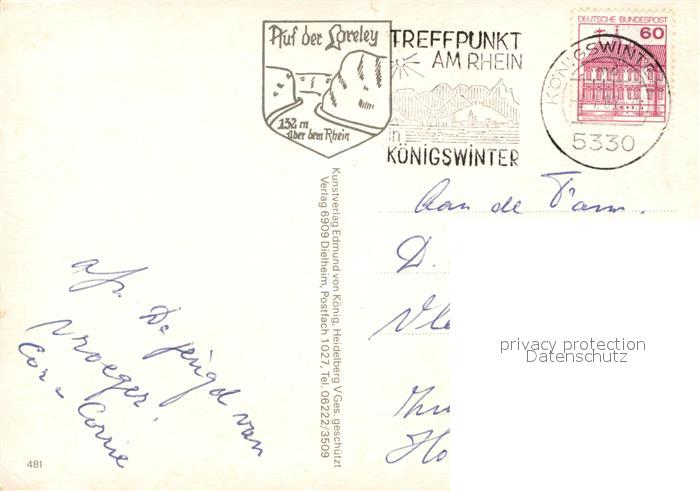 Auf der Loreley
132 m
über dem Rhein
TREFFPUNKT
AM RHEIN
in
KÖNIGSWINTER
DEUTSCHE BUNDESPOST
60
KÖNIGSWINTE
5330
Kunstverlag Edmund von König, Heidelberg V/Ges. geschützt
Verlag 6909 Dielheim, Postfach 1027, Tel. 06222/3509
Aan de Fam.
D.
Ho
De jeugd van
vroeger.
Cor & Corrie
privacy protection
Datenschutz
481